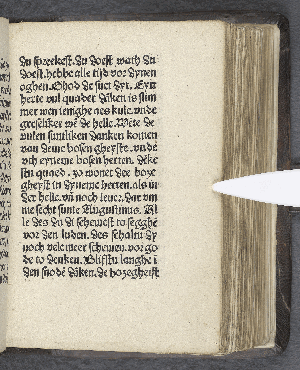 du spreekest. du doest wath du
doest. hebbe alle tijd vor dynen
oghen. Ghod de suet dyt. Eyn
herte vul quader däken is slim
mer wen ienighe aes kule. vnde
greseliker wē de helle. Wete de
vulen suntliken danken komen
van deme bosen gheyste. vn de
vth eyneme bosen herten. Dēke
stu quaed. zo wonet dee boze
gheyst in dyneme herten. als in
der helle. vn noch lever. Dar vm
me secht sunte Augustinus. Al
le des du di schemest to segghē
vor den luden. des schaltu dy
noch vele meer schemen vor go
de to denken. Blifstu langhe i
den snodē dāken. de bozegheist